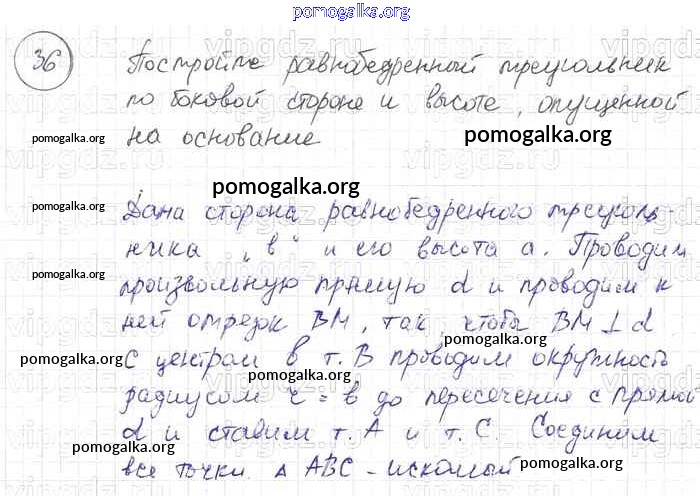 pomogalka.org
36 Постройте равнобедренный треугольник
по боковой стороне и высоте, опущенной
на основание
pomogalka.org
pomogalka.org
pomogalka.org
Дана сторона равнобедренного треуголь-
pomogalka.org
ника „в“ и его высота а. Проводим
pomogalka.org
pomogalka.org
произвольную прямую d и проводим к
ней отрезок ВМ, так, чтобы ВМ ⊥ d
pomogalka.org
С центром в т. В проводим окружность
pomogalka.org
pomogalka.org
радиусом r = в до пересечения с прямой
pomogalka.org
d и ставим т. А и т. С. Соединим
pomogalka.org
все точки. Δ АВС - искомый
pomogalka.org